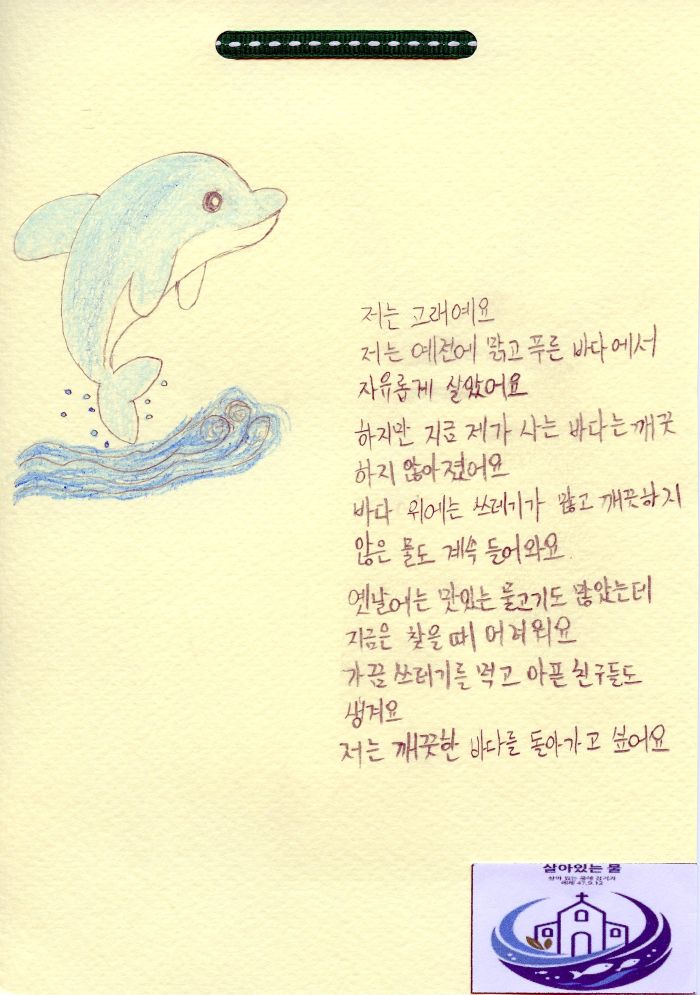 저는 고래예요
저는 예전에 맑고 푸른 바다에서
자유롭게 살았어요
하지만 지금 제가 사는 바다는 깨끗
하지 않아졌어요
바다 위에는 쓰레기가 많고 깨끗하지
않은 물도 계속 들어와요.
옛날에는 맛있는 물고기도 많았는데
지금은 찾을 때 어려워요
가끔 쓰레기를 먹고 아픈 친구들도
생겨요
저는 깨끗한 바다를 돌아가고 싶어요
살아있는 물
47.9.12